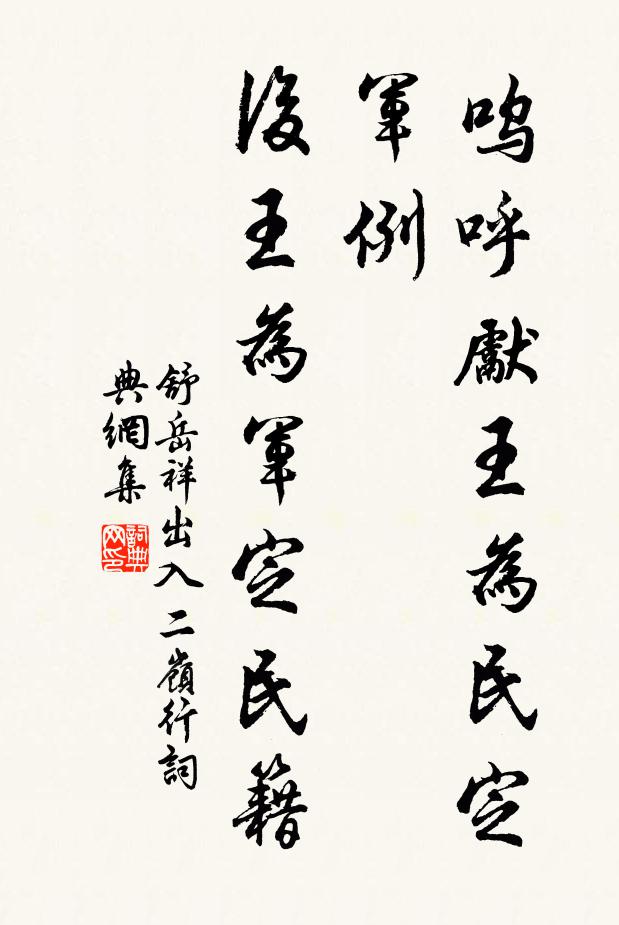 嗚呼獻王為民定
軍例
後王為軍定民籍
舒岳祥出入二嶺行詞
典網集
詞典
网印